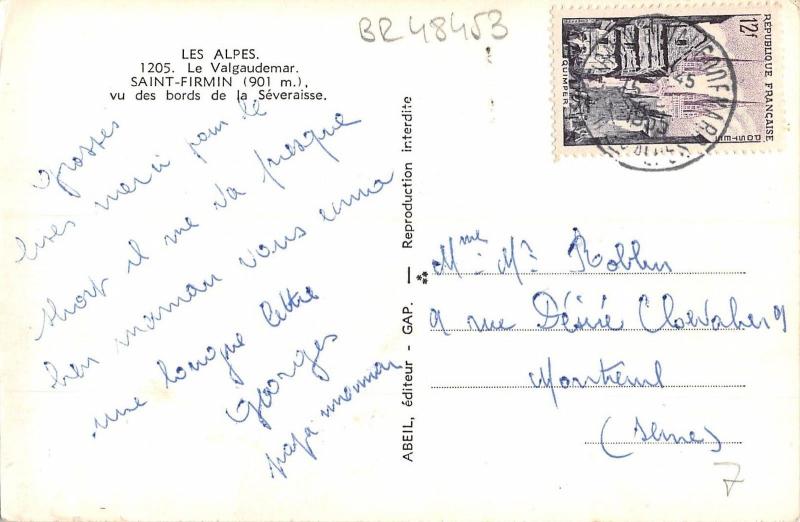 BR48453
LES ALPES.
1205. Le Valgaudemar.
SAINT-FIRMIN (901 m.),
vu des bords de la Séveraisse.
Grosses
bises merci pour le
short il me va presque
bien maman vous
une longue lettre
Georges
papa maman
ABEIL, éditeur - GAP. — Reproduction interdite
RÉPUBLIQUE FRANÇAISE
12f
QUIMPER
POSTES
Mme Mr Roblin
9 rue Désiré Chevalier 9
Montreuil
(Seine)
7